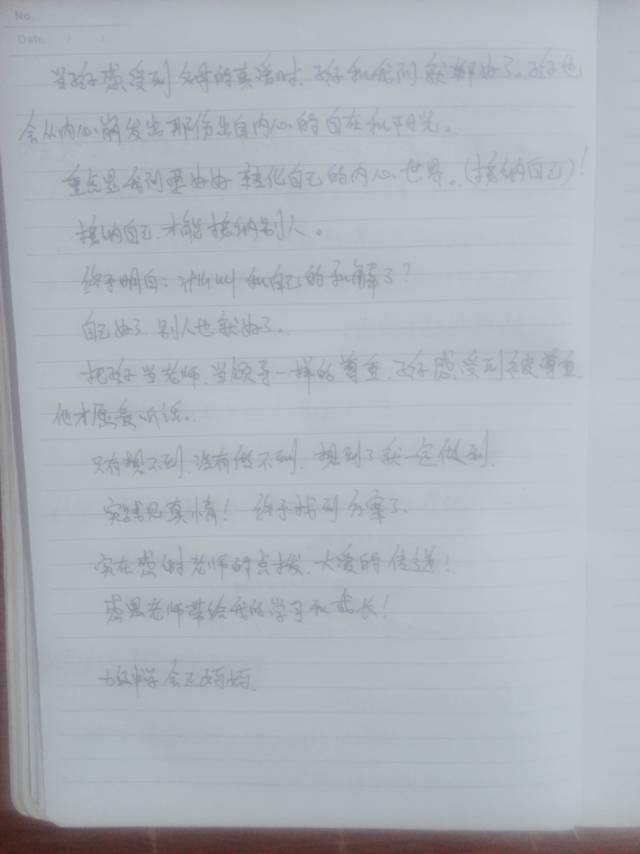 No.
Date
当孩子感受到父母的真爱时，孩子和我们就都好了。孩子也
会从内心萌发出那份出自内心的自在和阳光。
重点是看到要好好转化自己的内心世界。(接纳自己)！
接纳自己，才能接纳别人。
终于明白：什么叫和自己的和解了？
自己好了，别人也就好了。
把孩子当老师，当领导一样的尊重，孩子感受到被尊重，
他才愿意听话。
只有想不到，没有做不到，想到了就一定做到。
实践见真情！终于找到方案了。
实在感谢老师的点拨，大爱的传递！
感恩老师带给我的学习和成长！
妈妈